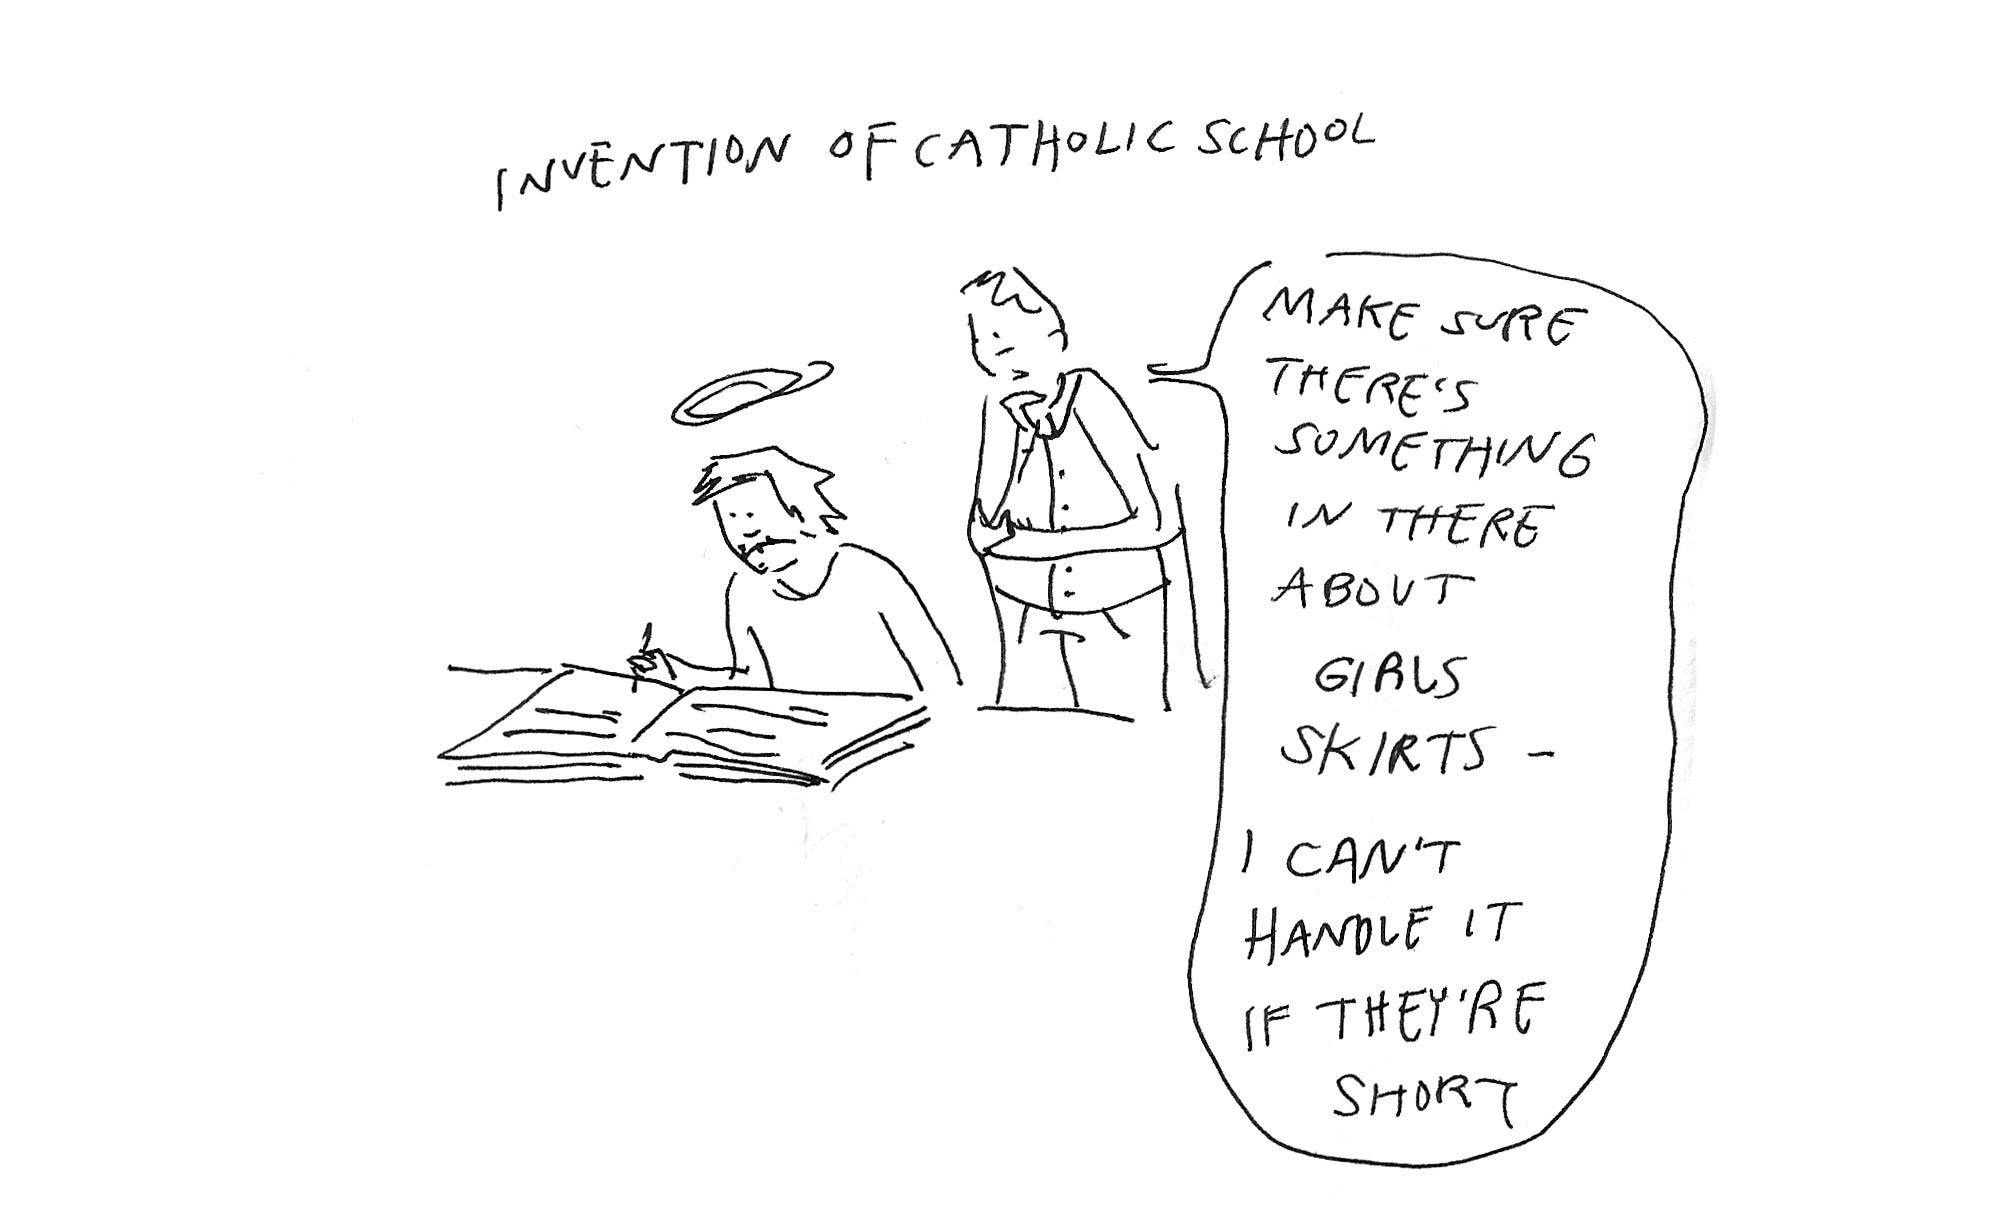 INVENTION OF CATHOLIC SCHOOL
MAKE SURE
THERE'S
SOMETHING
IN THERE
ABOUT
GIRLS
SKIRTS -
I CAN'T
HANDLE IT
IF THEY'RE
SHORT